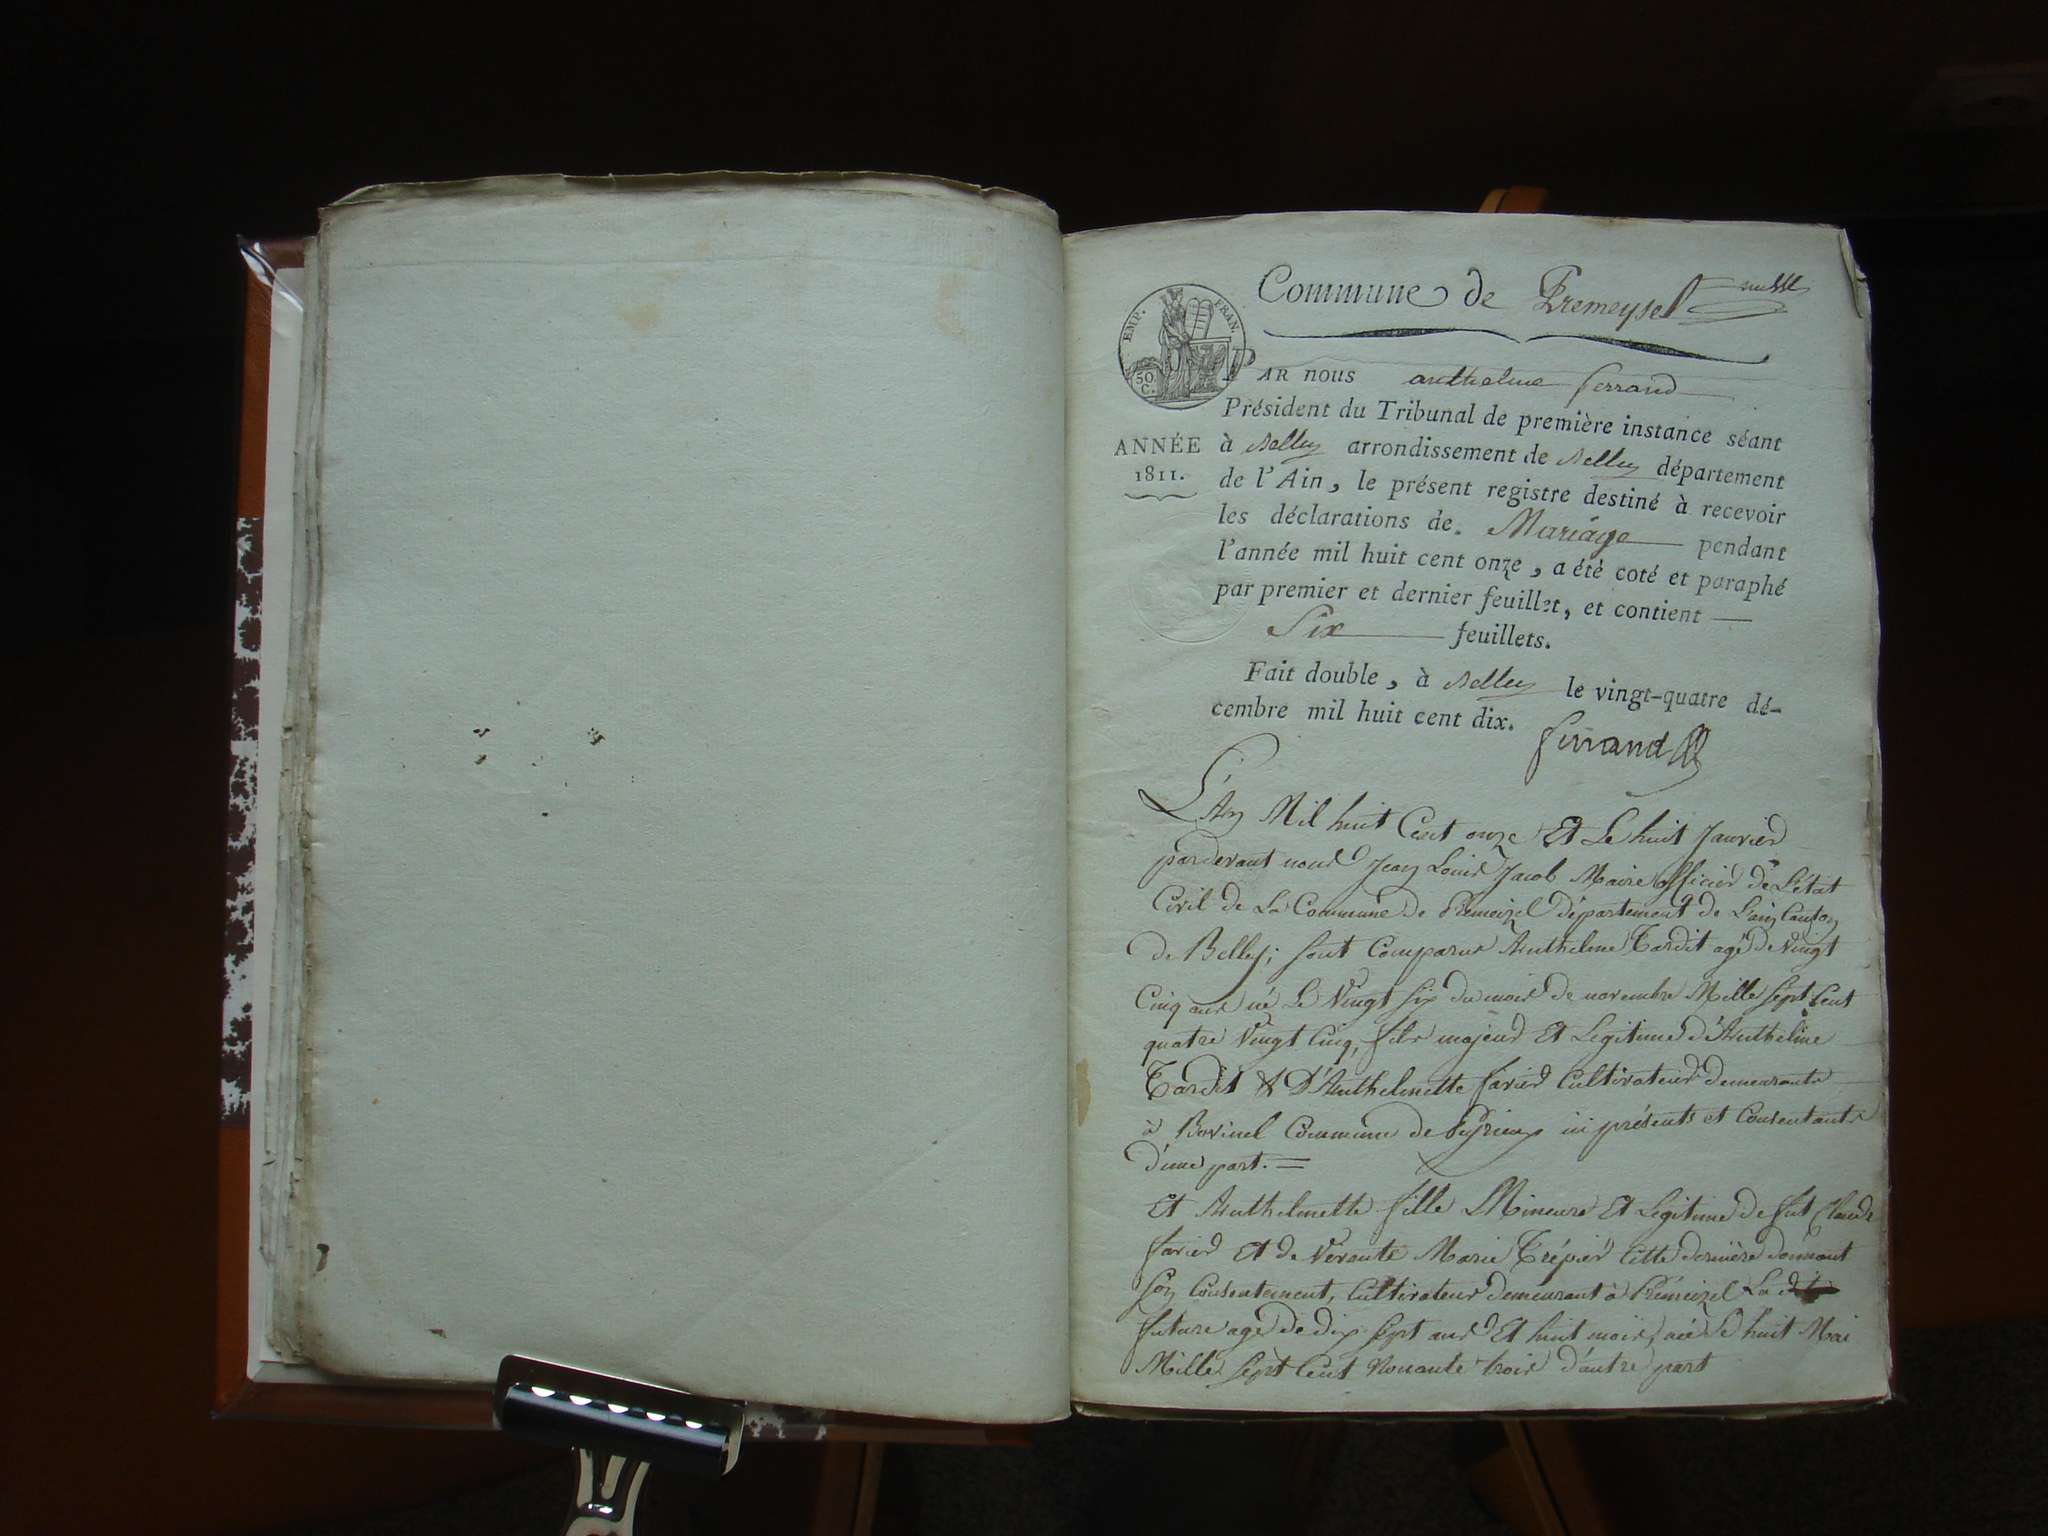 Commune de Premeysel
EMP. FRAN.
50 C.
PAR nous anthelme ferrand
Président du Tribunal de première instance séant
ANNÉE
1811.
à Belley arrondissement de Belley département
de l'Ain, le présent registre destiné à recevoir
les déclarations de Mariage pendant
l'année mil huit cent onze, a été coté et paraphé
par premier et dernier feuillet, et contient
Six feuillets.
Fait double, à Belley le vingt-quatre dé-
cembre mil huit cent dix.
ferrand
L'An Mil huit Cent onze Et Le huit Janvier
pardevant nous Jean Louis Jacob Maire officier de L'état
Civil de La Commune de Prémeizel département de L'ain Canton
de Belley; sont Comparus Anthelme Tardit agé de vingt
Cinq ans né Le Vingt Six du mois de novembre Mille Sept Cent
quatre Vingt Cinq, fils majeur Et Legitime d'Anthelme
Tardit & D'Anthelmette farier Cultivateurs demeurants
à Bovinel Commune de Peyrieux ici présents et Consentants
d'une part. =
Et Anthelmette fille Mineure Et Legitime de feut Claude
farier Et de Vivante Marie Trépier Cette dernière donnant
Son Consentement, Cultivateur demeurant à Prémeizel La
future agé de dix Sept ans Et huit mois, née Le huit Mai
Mille Sept Cent Nonante trois d'autre part